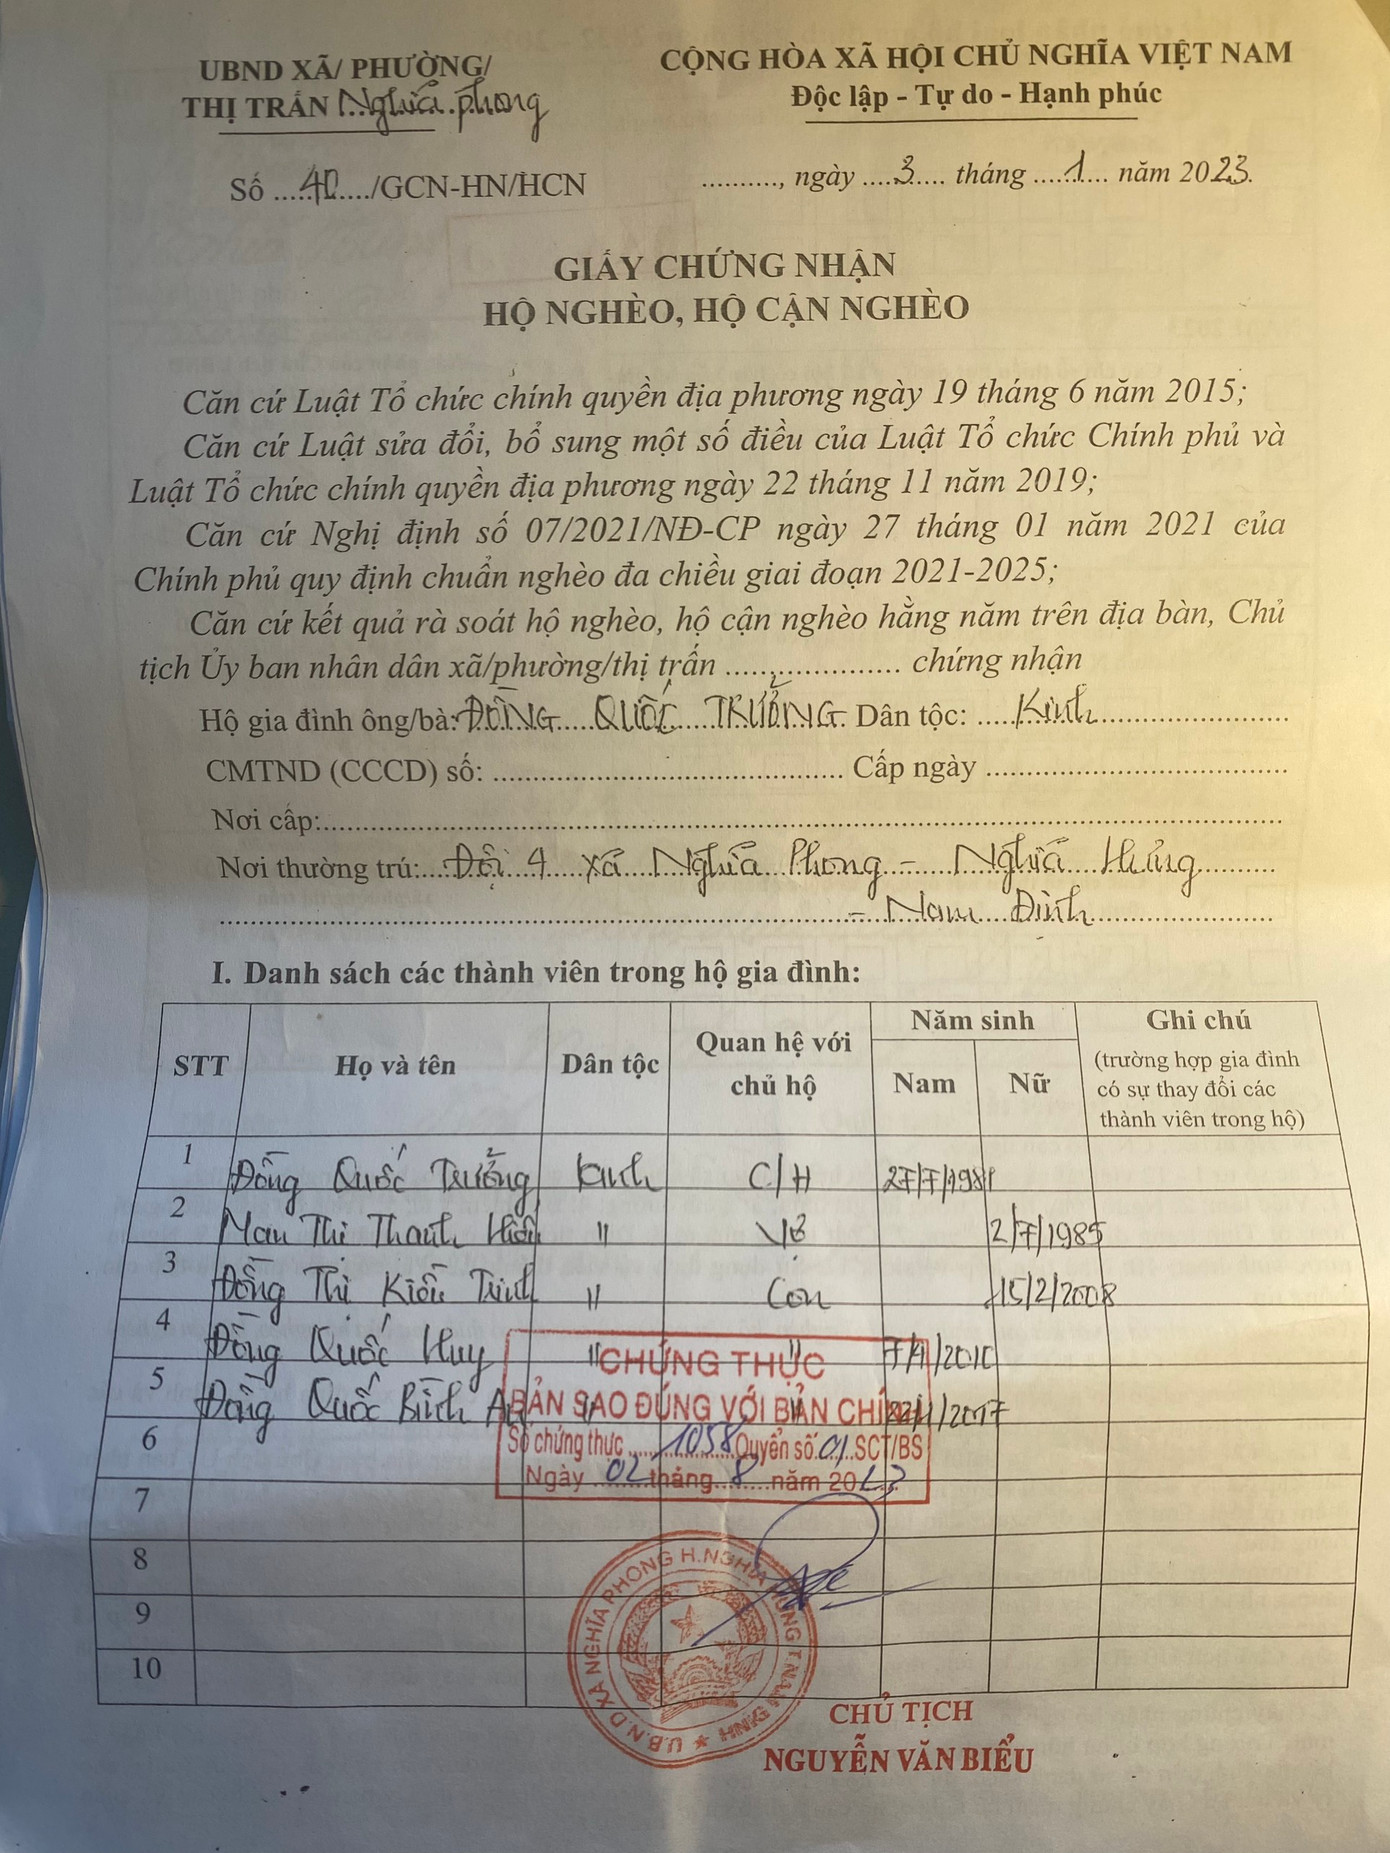 UBND XÃ/ PHƯỜNG/
THỊ TRẤN Nghĩa phong
CỘNG HÒA XÃ HỘI CHỦ NGHĨA VIỆT NAM
Độc lập - Tự do - Hạnh phúc
Số .....40...../GCN-HN/HCN
.........., ngày .....3..... tháng .....1..... năm 2023.
GIẤY CHỨNG NHẬN
HỘ NGHÈO, HỘ CẬN NGHÈO
Căn cứ Luật Tổ chức chính quyền địa phương ngày 19 tháng 6 năm 2015;
Căn cứ Luật sửa đổi, bổ sung một số điều của Luật Tổ chức Chính phủ và
Luật Tổ chức chính quyền địa phương ngày 22 tháng 11 năm 2019;
Căn cứ Nghị định số 07/2021/NĐ-CP ngày 27 tháng 01 năm 2021 của
Chính phủ quy định chuẩn nghèo đa chiều giai đoạn 2021-2025;
Căn cứ kết quả rà soát hộ nghèo, hộ cận nghèo hằng năm trên địa bàn, Chủ
tịch Ủy ban nhân dân xã/phường/thị trấn ........................ chứng nhận
Hộ gia đình ông/bà: ĐỒNG QUỐC TRƯỞNG Dân tộc: Kinh
CMTND (CCCD) số: ........................ Cấp ngày ........................
Nơi cấp:........................
Nơi thường trú: Đội 4 xã Nghĩa Phong - Nghĩa Hưng
- Nam Định
I. Danh sách các thành viên trong hộ gia đình:
STT Họ và tên Dân tộc Quan hệ với chủ hộ Năm sinh Nam Nữ Ghi chú
(trường hợp gia đình
có sự thay đổi các
thành viên trong hộ)
1 Đồng Quốc Trưởng Kinh C/H
2 Thị Thanh " Vợ 2/7/1985
3 Đồng Thị Kiều Trinh " Con 15/2/2008
4 Đồng Quốc Huy " "
5 Đồng Quốc Bình An " "
6
7
8
9
10
CHỨNG THỰC
BẢN SAO ĐÚNG VỚI BẢN CHÍNH
Số chứng thực 1058 Quyển số 01 SCT/BS
Ngày 02 tháng 8 năm 2023
U.B.N.D XÃ NGHĨA PHONG H.NGHĨA HƯNG T.NAM ĐỊNH
CHỦ TỊCH
NGUYỄN VĂN BIỂU